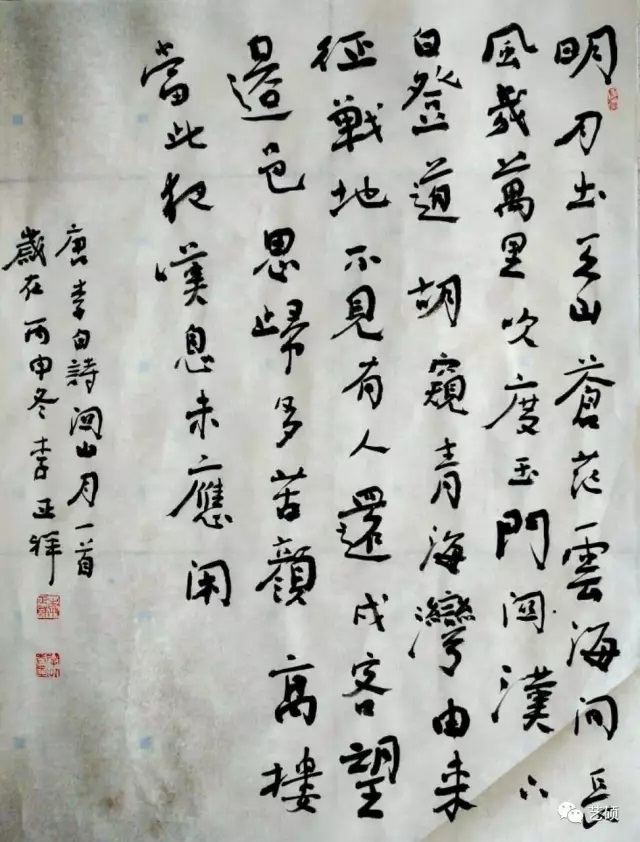 明月出天山蒼茫雲海间長
風幾萬里吹度玉門関漢下
白登道胡窺青海灣由来
征戰地不見有人還戍客望
邊邑思歸多苦顔高樓
當此夜嘆息未應闲
唐李白詩関山月一首
歲在丙申冬李亚祥
艺硕